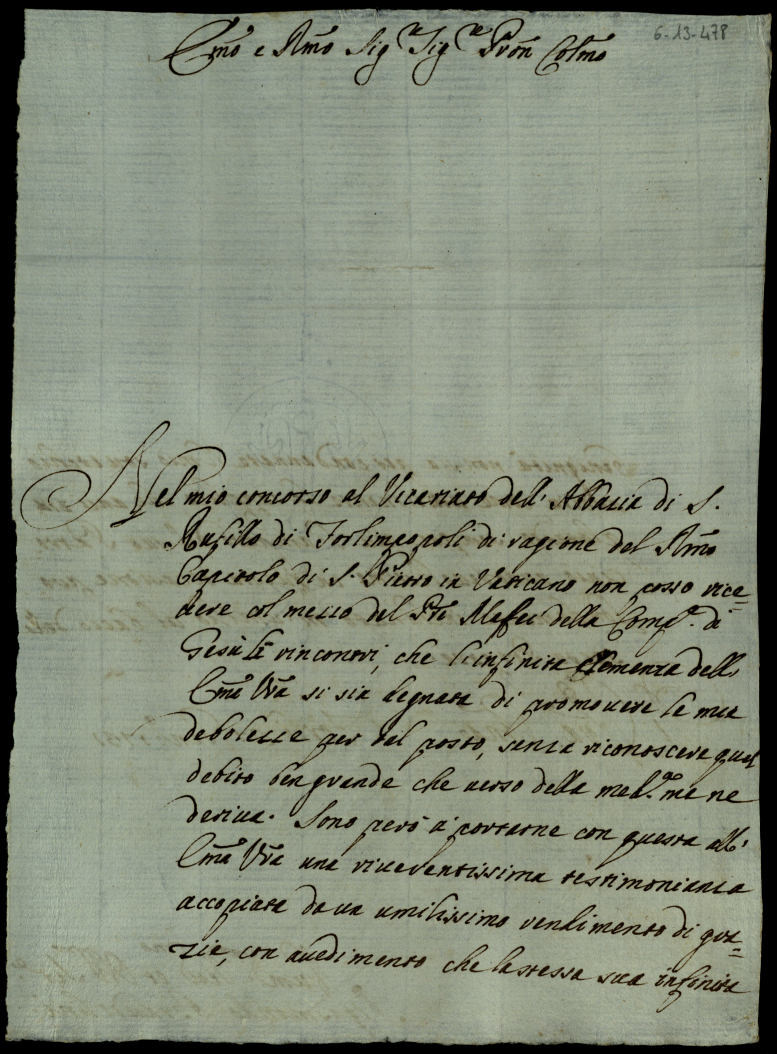 6-13-478
Emo e Rmo Sigre Sigre Pron Colmo
Nel mio concorso al Vicariato dell' Abbazia di S.
Rufillo di Forlimpopoli di ragione del Rmo
Capitolo di S. Pietro in Vaticano non posso rice=
vere col mezzo del Pre Mafei della Compa. di
Gesù li rincontri, che l'infinita Clemenza dell'
Emza Vra si sia degnata di promovere le mie
debolezze per tal posto, senza riconoscere quel
debito ben grande che verso della meda. me ne
deriva. Sono però à portarne con questa all'
Emza Vra una riverentissima testimonianza
accopiata da un umilissimo rendimento di gra=
zie, con avedimento che la stessa sua infinita